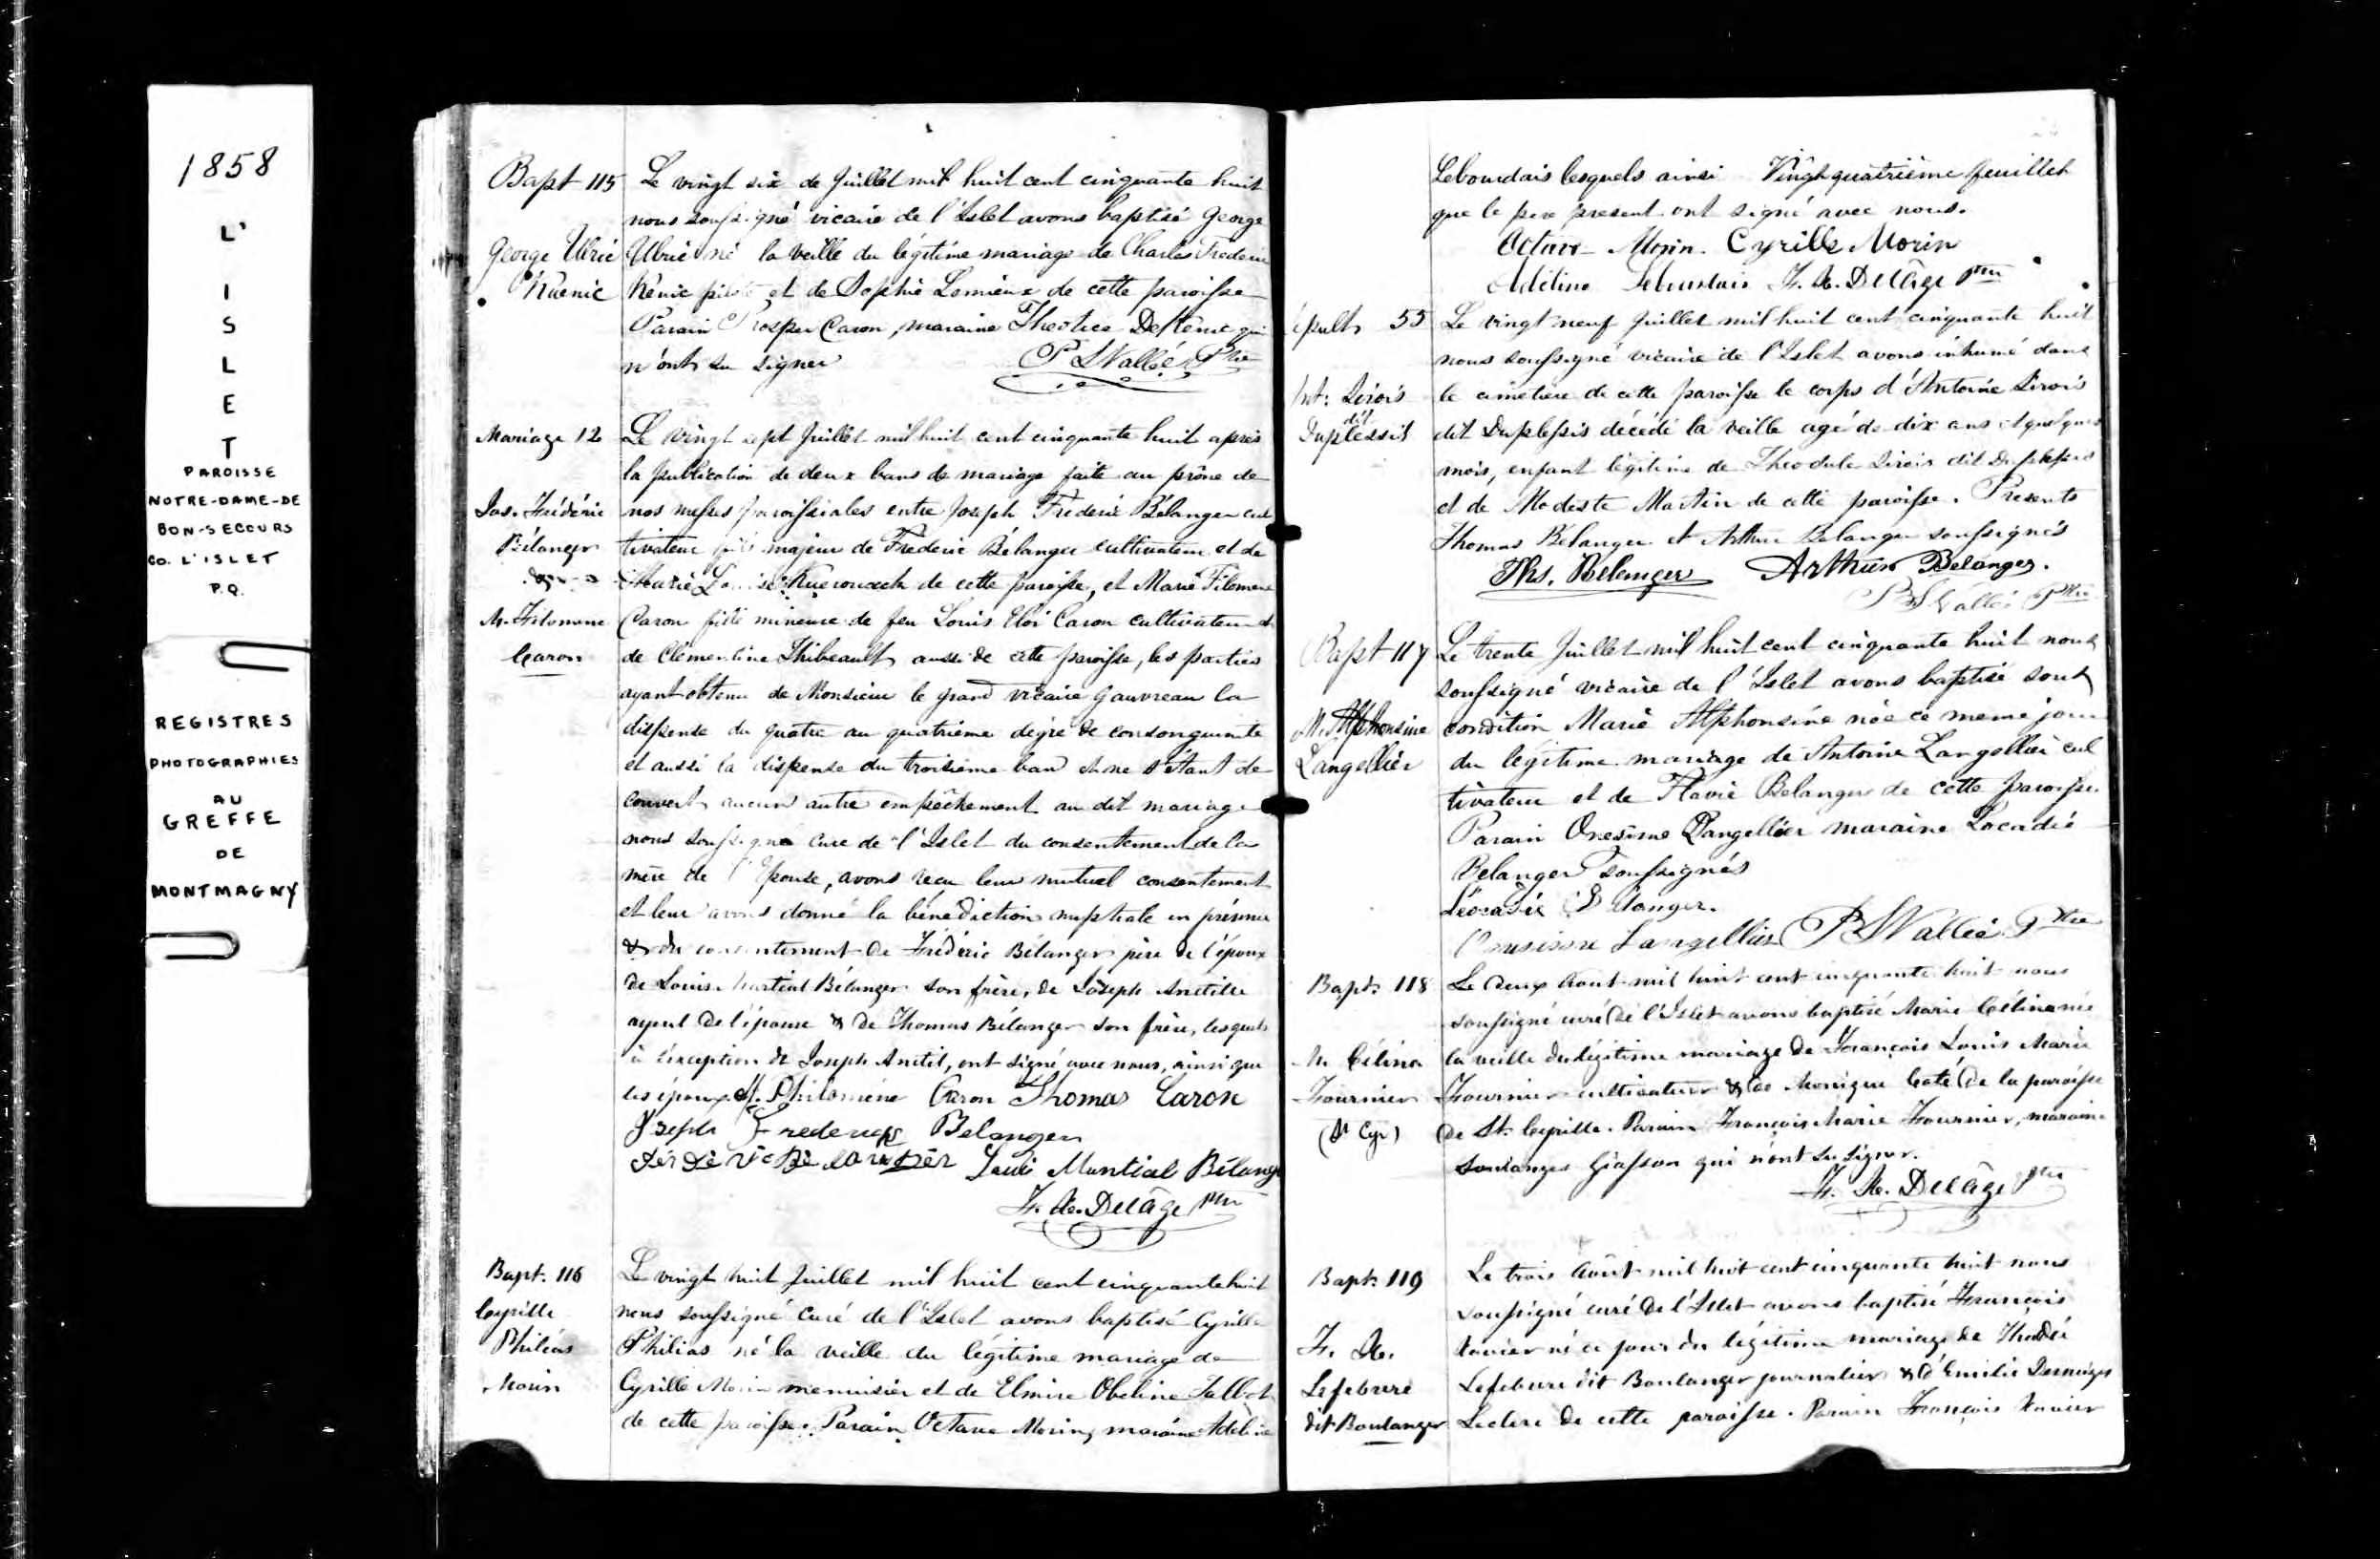 1858
L'
I
S
L
E
T
PAROISSE
NOTRE-DAME-DE
BON-SECOURS
CO. L'ISLET
P.Q.
REGISTRES
PHOTOGRAPHIES
AU
GREFFE
DE
MONTMAGNY
Bapt 115
George Ulric
Kuenic
Le vingt six de Juillet mil huit cent cinquante huit
nous soussigné vicaire de l'Islet avons baptisé George
Ulric né la veille du légitime mariage de Charles Frederic
Kenic pilote et de Sophie Lemieux de cette paroisse
Parain Prosper Caron, maraine qui
n'ont su signer P S Vallée Ptre
Mariage 12
Jos. Frédéric
Bélanger
M. Filomene
Caron
Le vingt sept Juillet mil huit cent cinquante huit après
la publication de deux bans de mariage faite au prône de
nos messes paroissiales entre Joseph Frederic Bélanger cul
tivateur fils majeur de Frederic Bélanger cultivateur et de
Marie Louise Kuerouack de cette paroisse, et Marie Filomene
Caron fille mineure de feu Louis Eloi Caron cultivateur et
de Clementine Thibeault aussi de cette paroisse, les parties
ayant obtenu de Monsieur le grand vicaire Gauvreau la
dispense du quatre au quatrième degré de consanguinité
et aussi la dispense du troisième ban et ne s'étant dé
couvert aucun autre empêchement au dit mariage
nous soussigné Curé de l'Islet du consentement de la
mère de l'Epouse, avons reçu leur mutuel consentement
et leur avons donné la bénédiction nuptiale en présence
& du consentement de Frédéric Bélanger père de l'époux
de Louis Martial Bélanger son frère, de Joseph Anctille
ayeul de l'épouse & de Thomas Bélanger son frère, lesquels
à l'exception de Joseph Anctil, ont signé avec nous, ainsi que
les époux. M. Philomène Caron Thomas Caron
Joseph Frederick Belanger
Louis Martial Bélanger
F. X. Delâge Ptre
Bapt. 116
Cyrille
Philéas
Morin
Le vingt huit Juillet mil huit cent cinquante huit
nous soussigné Curé de l'Islet avons baptisé Cyrille
Philias né la veille du légitime mariage de
Cyrille Morin menuisier et de Elmire Obeline Talbot
de cette paroisse. Parain Octave Morin, maraine Adeline
Lebourdais lesquels ainsi Vingt quatrième feuillet
que le pere present ont signé avec nous.
Octave Morin. Cyrille Morin
Adéline Lebourdais F. X. Delâge Ptre
Sépult. 55
Ant: Sirois
dit
Duplessis
Le vingt neuf Juillet mil huit cent cinquante huit
nous soussigné vicaire de l'Islet avons inhumé dans
le cimetiere de cette paroisse le corps d'Antoine Sirois
dit Duplessis décédé la veille agé de dix ans et quelques
mois, enfant légitime de Theodule Sirois dit Duplessis
et de Modeste Martin de cette paroisse. Presents
Thomas Bélanger et Arthur Bélanger soussignés
Ths. Belanger Arthur Belanger.
P S Vallée Ptre
Bapt 117
M. Alphonsine
Langellier
Le trente Juillet mil huit cent cinquante huit nous
soussigné vicaire de l'Islet avons baptisé sous
condition Marie Alphonsine née ce meme jour
du légitime mariage de Antoine Langellier cul
tivateur et de Flavie Belanger de cette paroisse.
Parain Onesime Langellier maraine Locadie
Belanger soussignés
Léocadie Bélanger.
Onesime Langellier P S Vallée Ptre
Bapt. 118
M. Célina
Fournier
(St Cyr)
Le deux Aout mil huit cent cinquante huit nous
soussigné curé de l'Islet avons baptisé Marie Célina née
la veille du légitime mariage de François Louis Marie
Fournier cultivateur & de Monique Coté de la paroisse
de St. Cyrille. Parain François Marie Fournier, maraine
Soulanges Giasson qui n'ont su signer.
F. X. Delâge Ptre
Bapt. 119
F. X.
Lefebvre
dit Boulanger
Le trois Août mil huit cent cinquante huit nous
soussigné curé de l'Islet avons baptisé François
Xavier né ce jour du légitime mariage de Thadée
Lefebvre dit Boulanger journalier & d'Emilie Desneiges
Leclerc de cette paroisse. Parain François Xavier